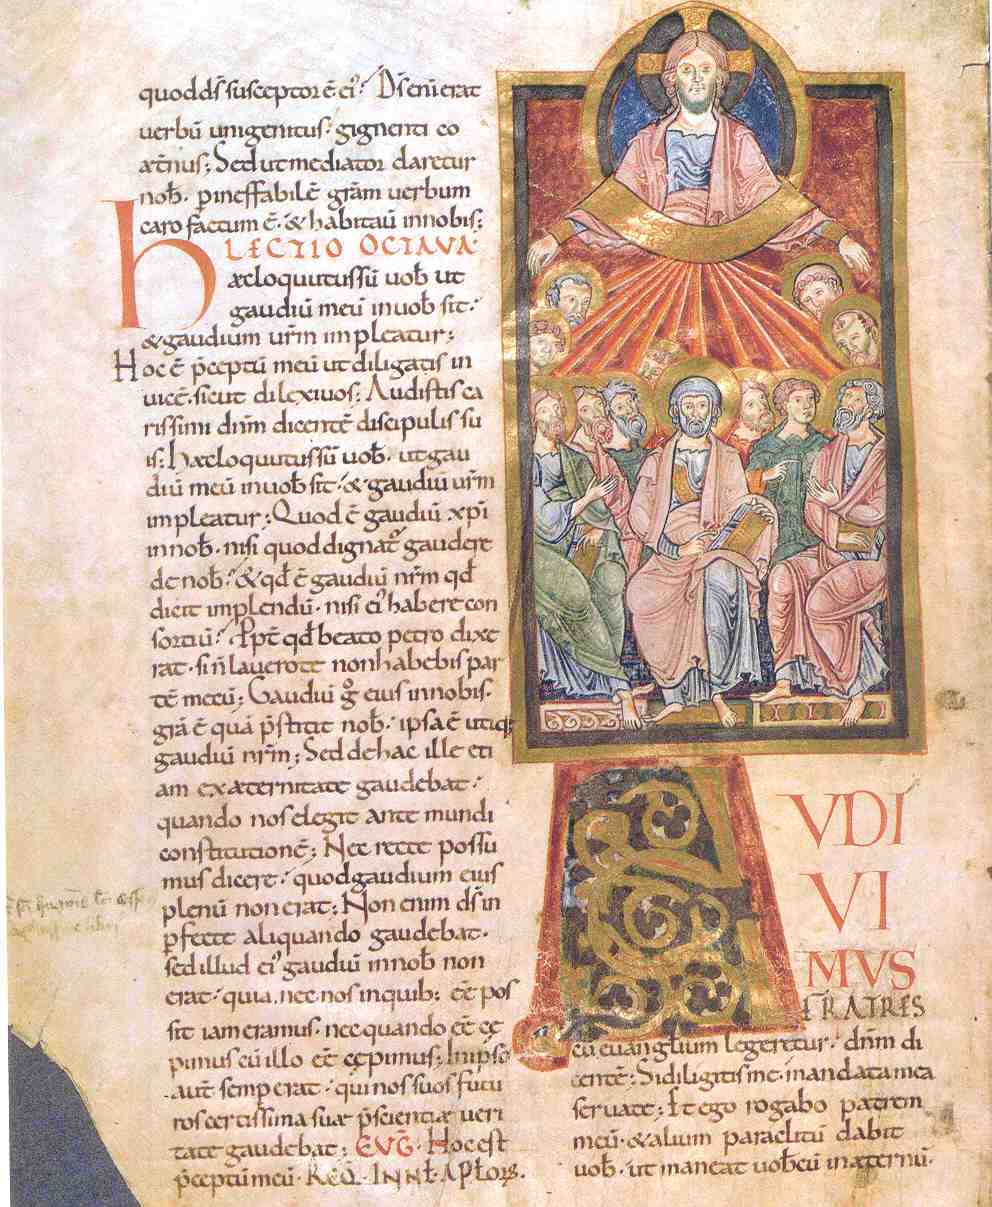 quod dš susceptor ē ei᷒. Dš enī erat
verbū unigenitus. gignenti co
æt̄nus; Sed ut mediator daretur
nob̄. p ineffabilē grām verbum
caro factum ē. & habitaū in nobis;
LECTIO OCTAVA.
Hæc loquutus sū vob̄ ut
gaudiū meū in vob̄ sit.
& gaudium urm̄ impleatur;
Hoc ē p̄ceptū meū ut diligatis in
vicē. sicut dilexi vos; Audistis ca
rissimi dnm̄ dicentē discipulis su
is; Hæc loquutus sū vob̄. ut gau
diū meū in vob̄ sit. & gaudiū urm̄
impleatur; Quod ē gaudiū xp̄i
in nob̄. nisi quod dignat᷒ gaudere
de nob̄. & qd̄ ē gaudiū nrm̄ qd̄
dicit implendū. nisi ei᷒ habere con
sortiū? Ppt̄ qd̄ beato petro dixe
rat. si n̄ lavero te non habebis par
tē mecū; Gaudiū g̊ eius in nobis.
grā ē quā p̄stitit nob̄. ipsa ē utiq;
gaudiū nrm̄; Sed de hac ille eti
am ex æternitate gaudebat.
quando nos elegit ante mundi
constitutionē; Nec recte possu
mus dicere. quod gaudium eius
plenū non erat; Non enim dš in
pfecte aliquando gaudebat.
sed illud ei᷒ gaudiū in nob̄ non
erat. quia nec nos in quib; eē pos
sit iam eramus. nec quando eē cę
pimus cū illo eē cępimus; In ipso
aut̄ semp erat. qui nos suos futu
ros certissima suæ p̄scientiæ veri
tate gaudebat; EVḠ. Hoc est
p̄ceptū meū. REQ̄. IN NT̄. APLOR̄.
AVDI
VI
MVS
FRATRES
cū euanglium legeretur. dnm̄ di
centē; Si diligitis me. mandata mea
servate; Et ego rogabo patrem
meū. & alium paraclitū dabit
vob̄. ut maneat vobcū in æternū.